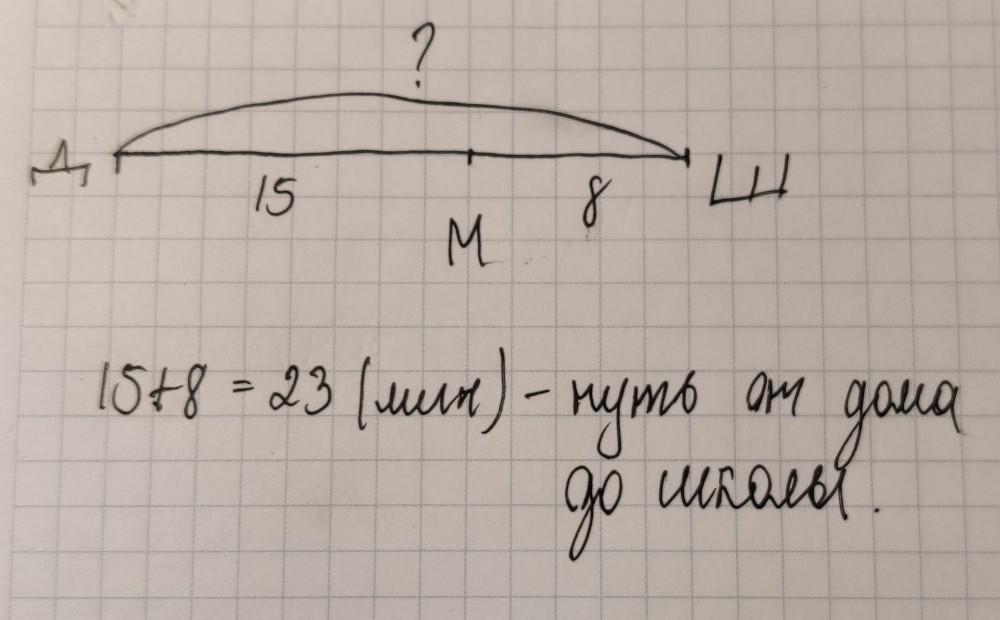 ?
Д Ш
15 8
М
15+8 = 23 (мин) - путь от дома
до школы.